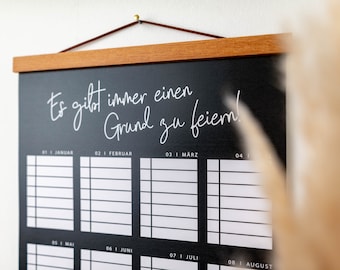 Es gibt immer einen
Grund zu feiern!
01 | JANUAR
02 | FEBRUAR
03 | MÄRZ
04 |
05 | MAI
06 | JUNI
07 | JULI
08 | AUGUST